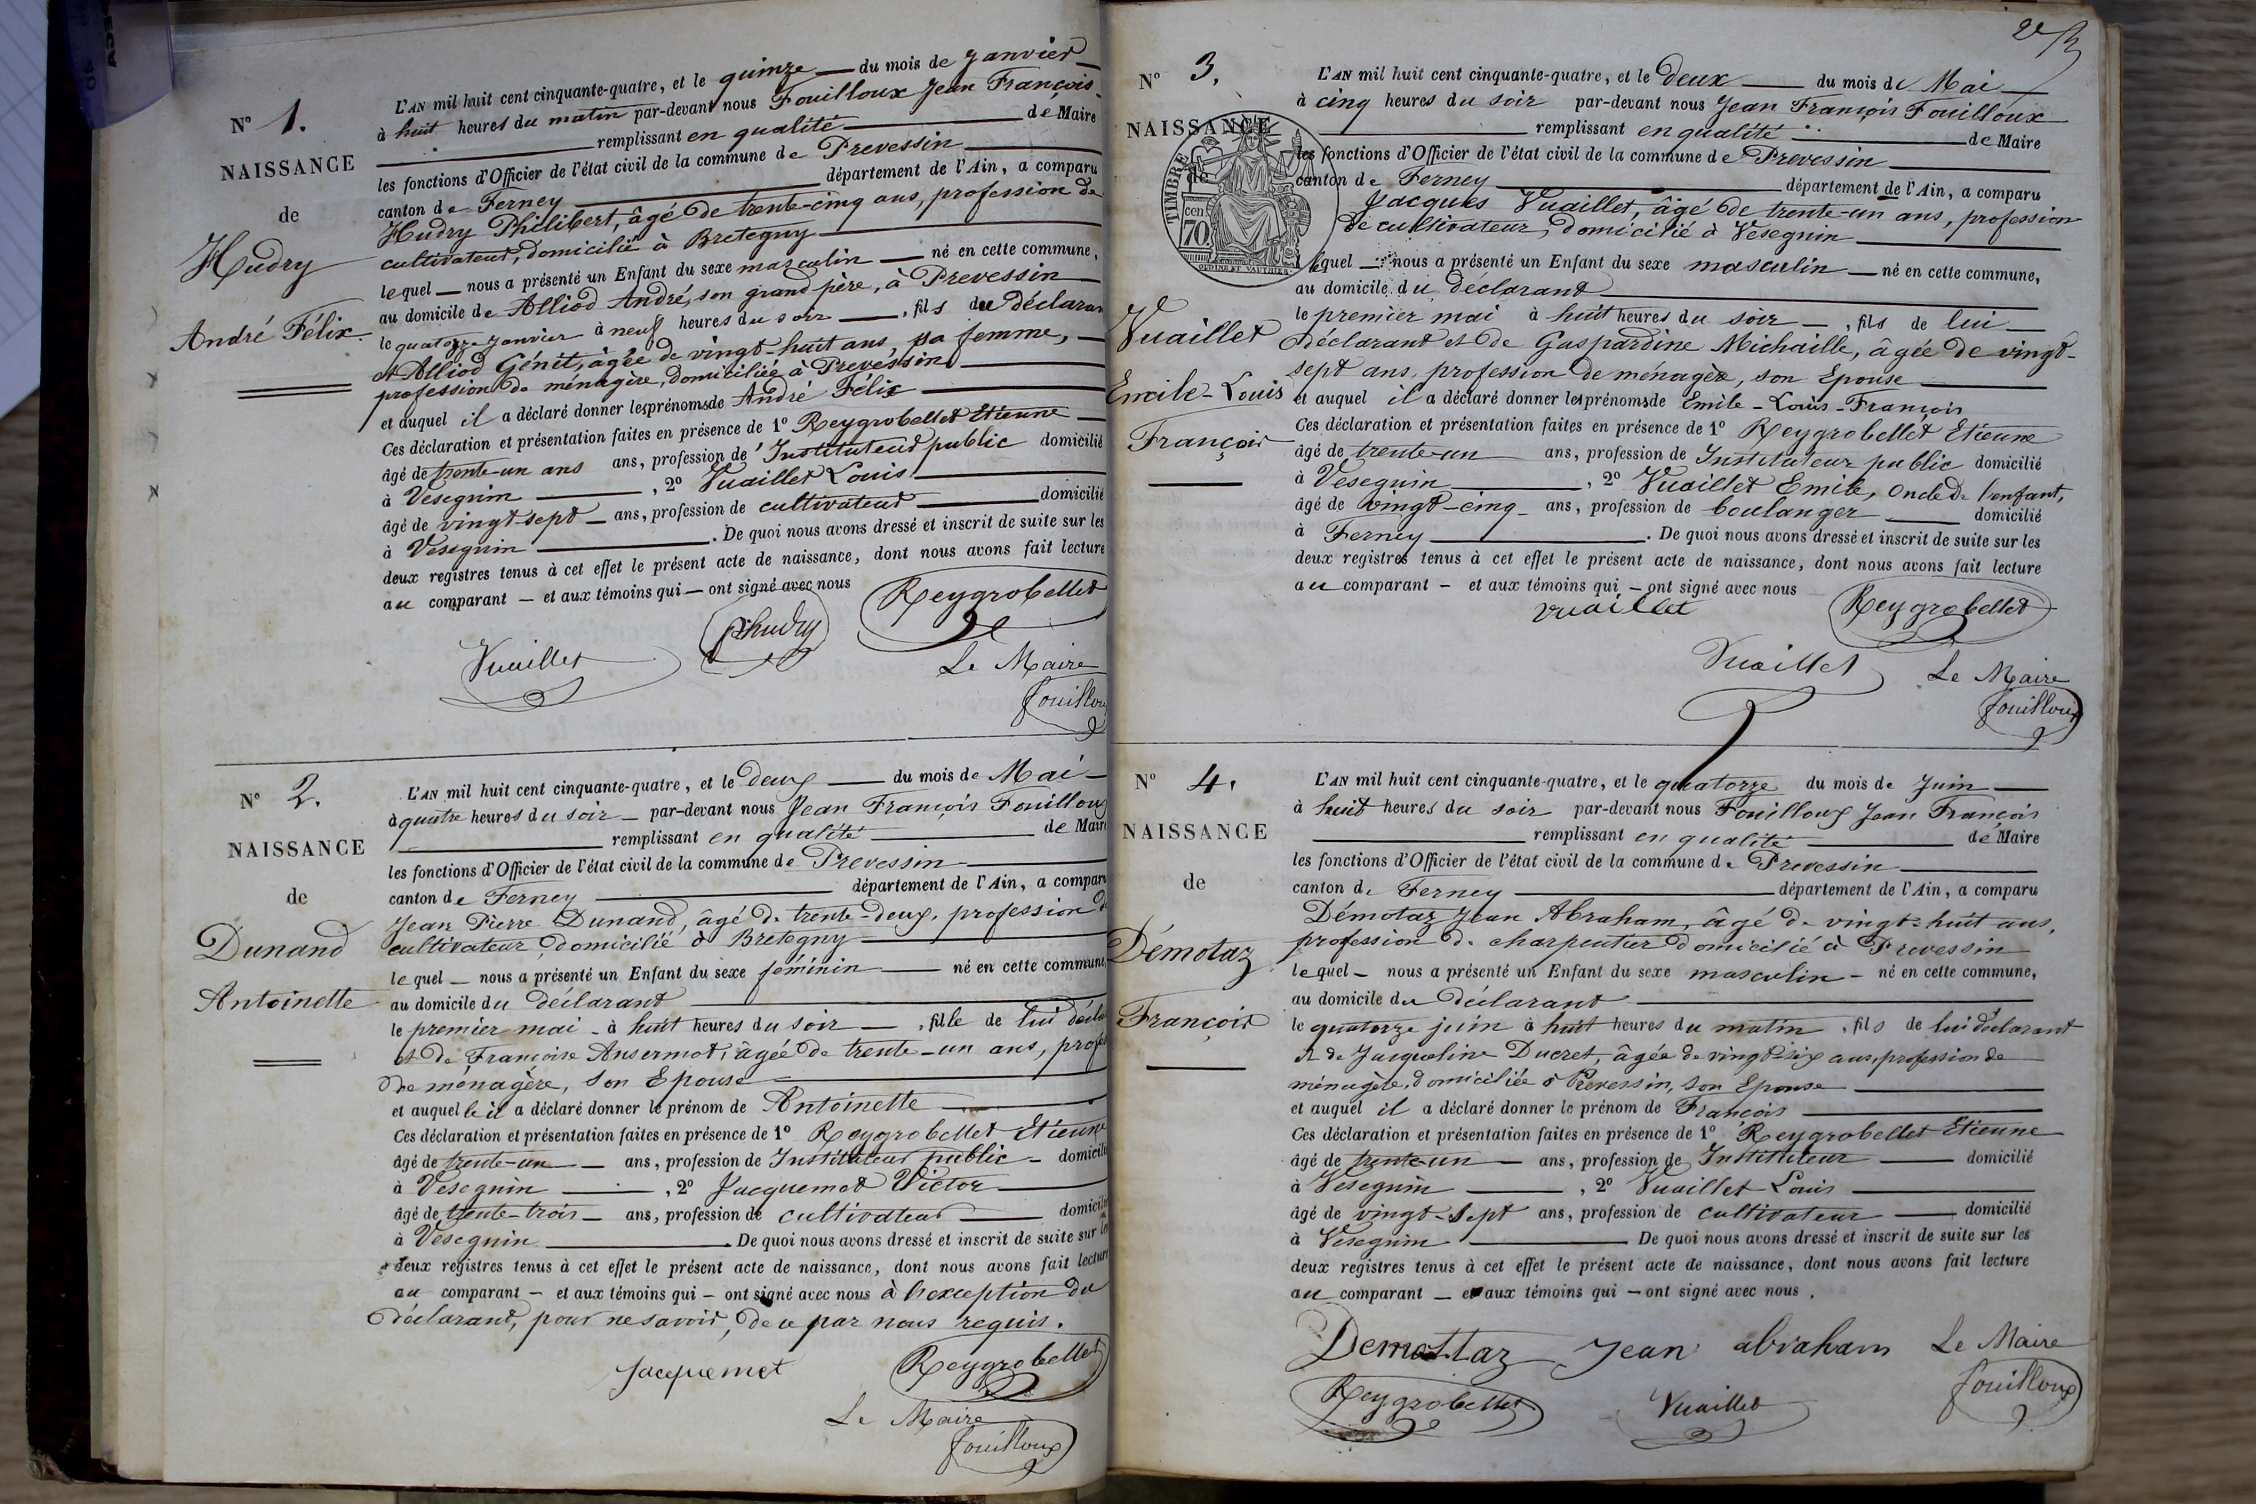 N° 1.
NAISSANCE
de
Hudry
André Félix.
L'AN mil huit cent cinquante-quatre, et le quinze du mois de Janvier
à huit heures du matin par-devant nous Fouilloux Jean François
remplissant en qualité de Maire
les fonctions d'Officier de l'état civil de la commune de Prevessin
canton de Ferney département de l'Ain, a comparu
Hudry Philibert, âgé de trente-cinq ans, profession de
cultivateur, domicilié à Bretegny
lequel nous a présenté un Enfant du sexe masculin né en cette commune,
au domicile de Alliod André, son grand père, à Prevessin
le quatorze Janvier à neuf heures du soir, fils du déclarant
et Alliod Génit, âgée de vingt-huit ans, sa femme,
profession de ménagère, domiciliée à Prevessin
et auquel il a déclaré donner les prénoms de André Félix
Ces déclaration et présentation faites en présence de 1° Reygrobellet Etienne
âgé de trente-un ans ans, profession de Instituteur public domicilié
à Vesegnin, 2° Vuaillet Louis
âgé de vingt-sept ans, profession de cultivateur domicilié
à Vesegnin. De quoi nous avons dressé et inscrit de suite sur les
deux registres tenus à cet effet le présent acte de naissance, dont nous avons fait lecture
au comparant et aux témoins qui ont signé avec nous
Phudry Reygrobellet
Vuaillet Le Maire
fouilloux
N° 2.
NAISSANCE
de
Dunand
Antoinette
L'AN mil huit cent cinquante-quatre, et le Deux du mois de Mai
à quatre heures du soir par-devant nous Jean François Fouilloux
remplissant en qualité de Maire
les fonctions d'Officier de l'état civil de la commune de Prevessin
canton de Ferney département de l'Ain, a comparu
Jean Pierre Dunand, âgé de trente-deux, profession de
cultivateur, domicilié à Bretegny
lequel nous a présenté un Enfant du sexe féminin né en cette commune,
au domicile du déclarant
le premier mai à huit heures du soir, fille de lui décla
et de Françoise Ansermot, âgée de trente-un ans, profes
de ménagère, son Epouse
et auquel le il a déclaré donner le prénom de Antoinette
Ces déclaration et présentation faites en présence de 1° Reygrobellet Etienne
âgé de trente-un ans, profession de Instituteur public domicilié
à Vesegnin, 2° Jacquemet Victor
âgé de trente-trois ans, profession de cultivateur domicilié
à Vesegnin. De quoi nous avons dressé et inscrit de suite sur les
deux registres tenus à cet effet le présent acte de naissance, dont nous avons fait lecture
au comparant et aux témoins qui ont signé avec nous à l'exception du
déclarant, pour ne savoir, de ce par nous requis.
Jacquemet Reygrobellet
Le Maire
fouilloux
N° 3.
NAISSANCE
de
TIMBRE
cen
70
Vuaillet
Emile-Louis
François
L'AN mil huit cent cinquante-quatre, et le deux du mois de Mai
à cinq heures du soir par-devant nous Jean François Fouilloux
remplissant en qualité de Maire
les fonctions d'Officier de l'état civil de la commune de Prevessin
canton de Ferney département de l'Ain, a comparu
Jacques Vuaillet, âgé de trente-un ans, profession
de cultivateur, domicilié à Vesegnin
lequel nous a présenté un Enfant du sexe masculin né en cette commune,
au domicile du déclarant
le premier mai à huit heures du soir, fils de lui
déclarant et de Gaspardine Michaille, âgée de vingt-
sept ans, profession de ménagère, son Epouse
et auquel il a déclaré donner les prénoms de Emile-Louis-François
Ces déclaration et présentation faites en présence de 1° Reygrobellet Etienne
âgé de trente-un ans, profession de Instituteur public domicilié
à Vesegnin, 2° Vuaillet Emile, oncle de l'enfant,
âgé de vingt-cinq ans, profession de boulanger domicilié
à Ferney. De quoi nous avons dressé et inscrit de suite sur les
deux registres tenus à cet effet le présent acte de naissance, dont nous avons fait lecture
au comparant et aux témoins qui ont signé avec nous
vuaillet Reygrobellet
Vuaillet Le Maire
fouilloux
N° 4.
NAISSANCE
de
Démotaz
François
L'AN mil huit cent cinquante-quatre, et le quatorze du mois de Juin
à huit heures du soir par-devant nous Fouilloux Jean François
remplissant en qualité de Maire
les fonctions d'Officier de l'état civil de la commune de Prevessin
canton de Ferney département de l'Ain, a comparu
Démotaz Jean Abraham, âgé de vingt-huit ans,
profession de charpentier domicilié à Prevessin
lequel nous a présenté un Enfant du sexe masculin né en cette commune,
au domicile du déclarant
le quatorze juin à huit heures du matin, fils de lui déclarant
et de Jacqueline Ducret, âgée de vingt-six ans, profession de
ménagère, domiciliée à Prevessin, son Epouse
et auquel il a déclaré donner le prénom de François
Ces déclaration et présentation faites en présence de 1° Reygrobellet Etienne
âgé de trente-un ans, profession de Instituteur domicilié
à Vesegnin, 2° Vuaillet Louis
âgé de vingt-sept ans, profession de cultivateur domicilié
à Vesegnin De quoi nous avons dressé et inscrit de suite sur les
deux registres tenus à cet effet le présent acte de naissance, dont nous avons fait lecture
au comparant et aux témoins qui ont signé avec nous.
Demottaz Jean abraham Le Maire
Reygrobellet Vuaillet fouilloux